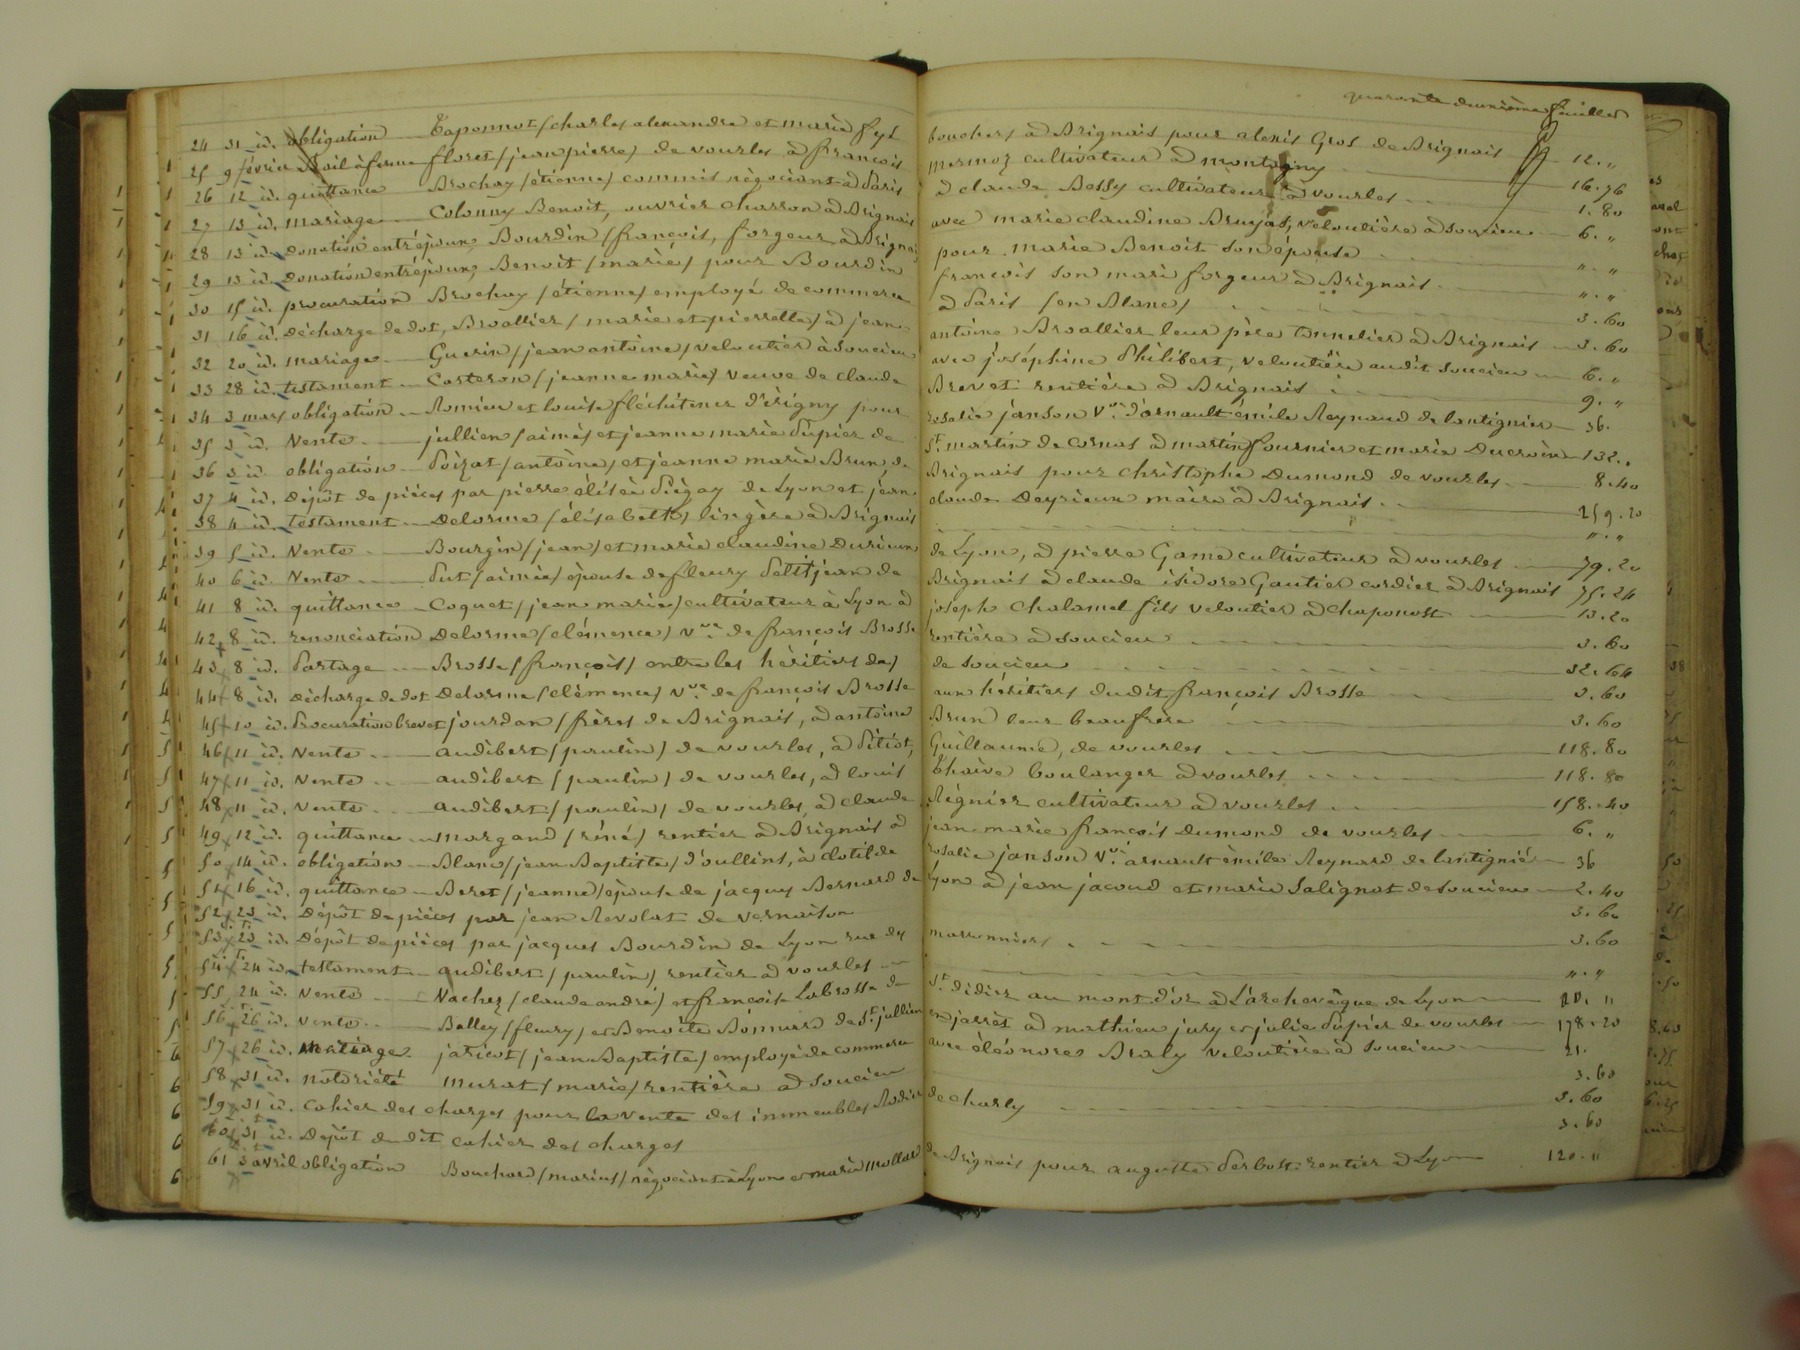 quarante deuxième feuillet
24 31 id. obligation Taponnot (charles alexandre et marie fyt bouchers à Brignais pour alexis Gros de Brignais 12. "
25 9 février Bail à ferme floret (jean pierre) de vourles à françois mermoz cultivateur à montagny 16.76
26 12 id. quittance Brochay (étienne) commis négociant à Paris à claude Bessy cultivateur à vourles 1.80
27 13 id. mariage Colonny Benoit, ouvrier charron à Brignais avec marie claudine Brujas, veloutière à soucieu 6. "
28 13 id. Donation entr'époux, Bourdin (françois, forgeur à Brignais pour marie Benoit son épouse " . "
29 13 id. Donation entr'époux, Benoit (marie) pour Bourdin françois son mari forgeur à Brignais " . "
30 15 id. procuration Brochay (étienne) employé de commerce à Paris (en Blanc) 3.60
31 16 id. Décharge de dot, Broallier (marie et pierrette) à jean antoine Broallier leur père tonnelier à Brignais 3.60
32 20 id. mariage Guerin (jean antoine) veloutier à soucieu avec joséphine Philibert, veloutière audit soucieu 6. "
33 28 id. testament Corteron (jeanne marie) veuve de claude Brevet rentière à Brignais 9. "
34 3 mars obligation Romieu et louise fléchit d'irigny pour rosalie janson Vve d'arnault émile Reynaud de lantignier 36.
35 3 id. Vente jullien (aimé) et jeanne marie Dupier de St martin de cornas à martin fournier et marie Ducroix 132. "
36 3 id. obligation Poizat (antoine) et jeanne marie Brun, de Brignais pour christophe Dumond de vourles 8.40
37 4 id. Dépôt de pièces par pierre élisée Piégay de Lyon et jean claude Deyrieux maire à Brignais 259.20
38 4 id. testament Delorme (élisabeth) lingère à Brignais " . "
39 5 id. Vente Bourgin (jean) et marie claudine Durieux de Lyon, à pierre Game cultivateur à vourles 79.20
40 6 id. Vente Put (aimée) épouse de fleury Petitjean de Brignais à claude isidore Gautier cordier à Brignais 75.24
41 8 id. quittance Coquet (jean marie) cultivateur à Lyon à joseph Chalamel fils veloutier à chaponost 13.20
42 8 id. renonciation Delorme (clémence) Vve de françois Brosse rentière à soucieu 3.60
43 8 id. Partage Brosse (françois) entre les héritiers de) de soucieu 32.64
44 8 id. Décharge de dot Delorme (clémence) Vve de françois Brosse aux héritiers dudit françois Brosse 3.60
45 10 id. Procuration brevet jourdan (frères de Brignais, à antoine Brun leur beaufrère 3.60
46 11 id. Vente audibert (paulin) de vourles, à Pitiot, Guillaume, de vourles 118.80
47 11 id. Vente audibert (paulin) de vourles, à louis Thaive boulanger à vourles 118.80
48 11 id. Vente audibert (paulin) de vourles, à claude Régnier cultivateur à vourles 158.40
49 12 id. quittance Morgand (réné) rentier à Brignais à jean marie françois Dumond de vourles 6. "
50 14 id. obligation Blanc (jean Baptiste) d'oullins, à clotilde rosalie janson Vve arnault émile Reynard de lantignié 36
51 16 id. quittance Beret (jeanne) épouse de jacques Bernard de Lyon à jean jacoud et marie Salignat de soucieu 2.40
52 23 id. Dépôt de pièces par jean Revolat de vernaison 3.60
53 23 id. Dépôt de pièces par jacques Bourdin de Lyon rue des marronniers 3.60
54 24 id. testament audibert (paulin) rentier à vourles " . "
55 24 id. Vente Vachez (claude andré) et françoise Labrosse de St didier au mont d'or à L'archevêque de Lyon "
56 26 id. Vente Balley (fleury) et Benoîte Bonnard de St jullien en jarrêt à mathieu jury et julie Dupier de vourles 178.20
57 26 id. Mariage jaricot (jean Baptiste) employé de commerce avec éléonore Braly veloutière à soucieu 21.
58 31 id. notoriété Murat (marie) rentière à soucieu 3.60
59 31 id. Cahier des charges pour la vente des immeubles Rodier de charly 3.60
60 31 id. Dépôt du dit cahier des charges 3.60
61 3 avril obligation Bouchard (marius) négociant à Lyon et marie Mollard de Brignais pour auguste Perbost rentier à Lyon 120. "